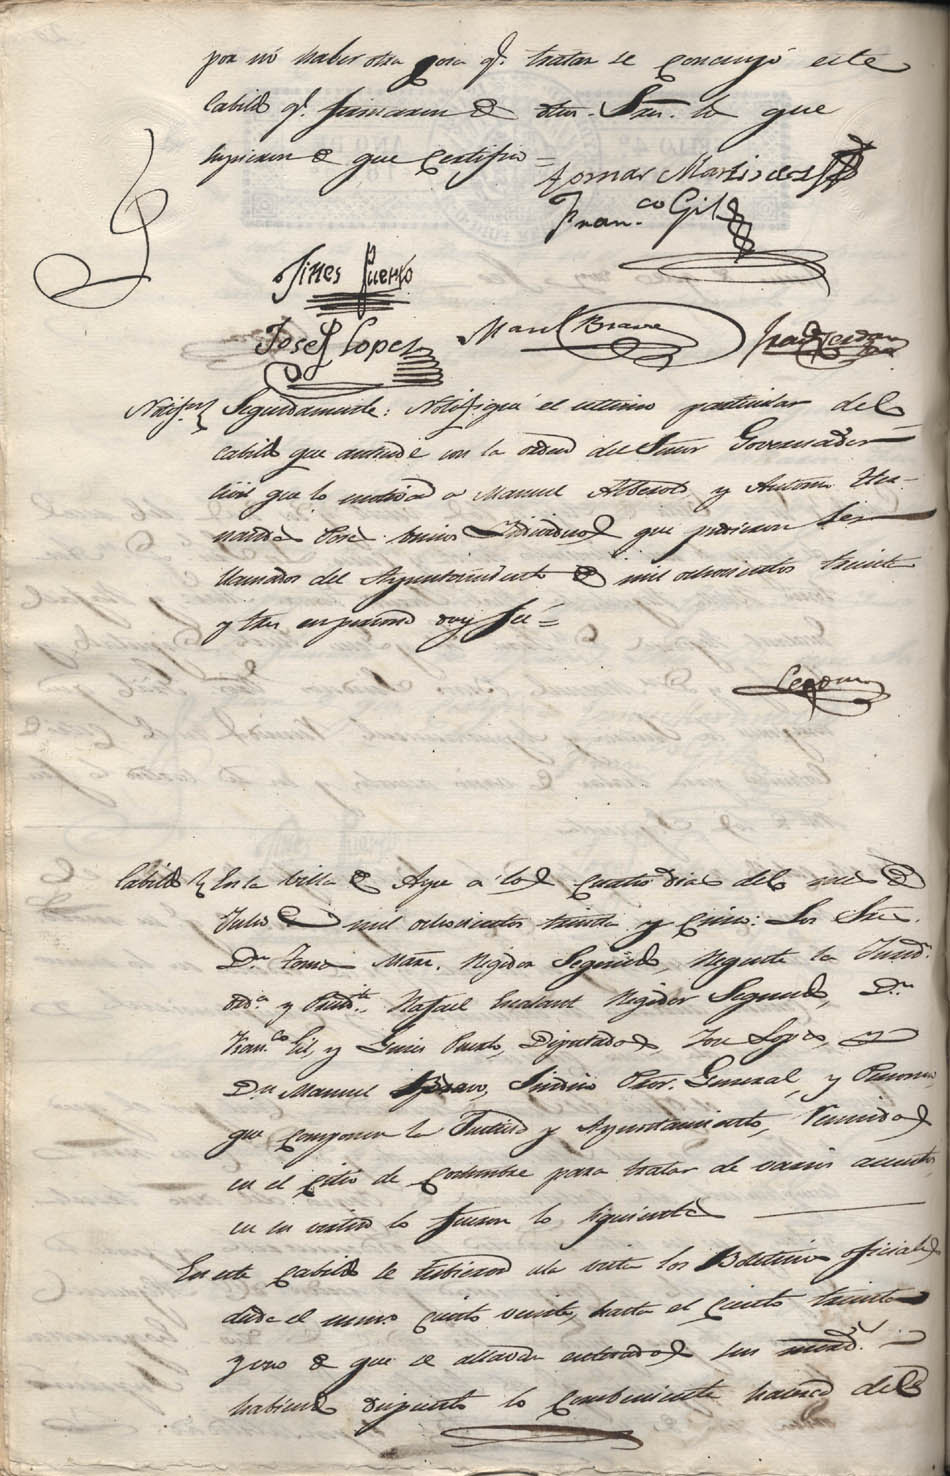 por no haber otra cosa q.e tratar se concluyó este
Cabildo q.e firmaron de dhos. Sres. lo que
supieron de que Certifico =
Tomas Martinez
Fran.co Gil
Jines Puerto
Josef Lopez Man.l Bravo
Notif.on Seguidamente: Notifiqué el ultimo particular del
Cabildo que antecede con la orden del Señor Governador
Civil que lo motiva a Manuel Alberola y Antonio
que pidieron ser
llamados del Ayuntamiento de mil ochocientos treinta
y tres en persona doy fé =
Ledesma
Cabildo En la Villa de Aspe a los Cuatro dias del mes de
Julio de mil ochocientos treinta y Cinco: Los Sres.
D.n Tomas Mart. Regidor Segundo, Regente la Jurisd.
ord.a y Presid.te, Rafael Regidor Segundo, D.n
Fran.co Gil, y Gines Puerto, Diputados, Jose Lopez, y
D.n Manuel Bravo, Sindico Pror. General, y Personero
que componen la Justicia y Ayuntamiento, Reunidos
en el Citio de Costumbre para tratar de varios asuntos
en su virtud lo fueron lo siguiente
En este Cabildo se tubieron ala vista los Boletines oficiales
desde el num.o Ciento veinte, hasta el Ciento treinta
y uno de que se allavan enterados sus merd.s
habiendo dispuesto lo Combeniente del